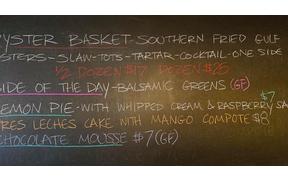 YSTER BASKET-SOUTHERN FRIED GULF
STERS-SLAW-TOTS-TARTAR-COCKTAIL-ONE SIDE
1/2 DOZEN $17 DOZEN $25
SIDE OF THE DAY-BALSAMIC GREENS (GF)
$7
LEMON PIE-WITH WHIPPED CREAM & RASPBERRY SA
RES LECHES CAKE WITH MANGO COMPOTE $8
CHOCOLATE MOUSSE $7 (GF)